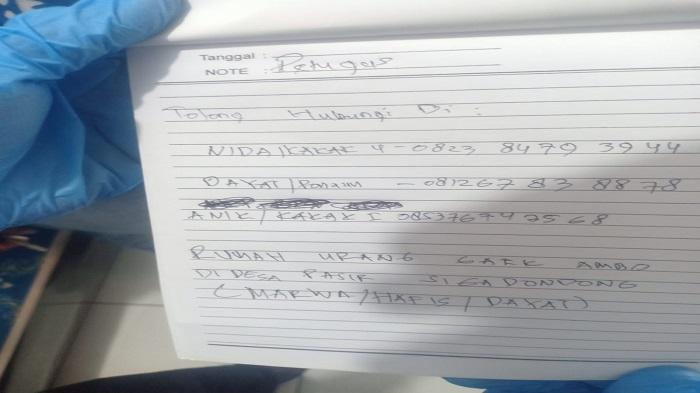 Tanggal :
NOTE : Petugas
Tolong Hubungi Di :
NIDA/KAKAK 4 - 0823 8479 3944
DAYAT/Ponaan - 081267 83 8878
ANIK/KAKAK I 085376747568
RUMAH URANG GAEK AMBO
DI DESA PASIR SIGADONDONG
(MARWA/HAFIS/DAYAT)